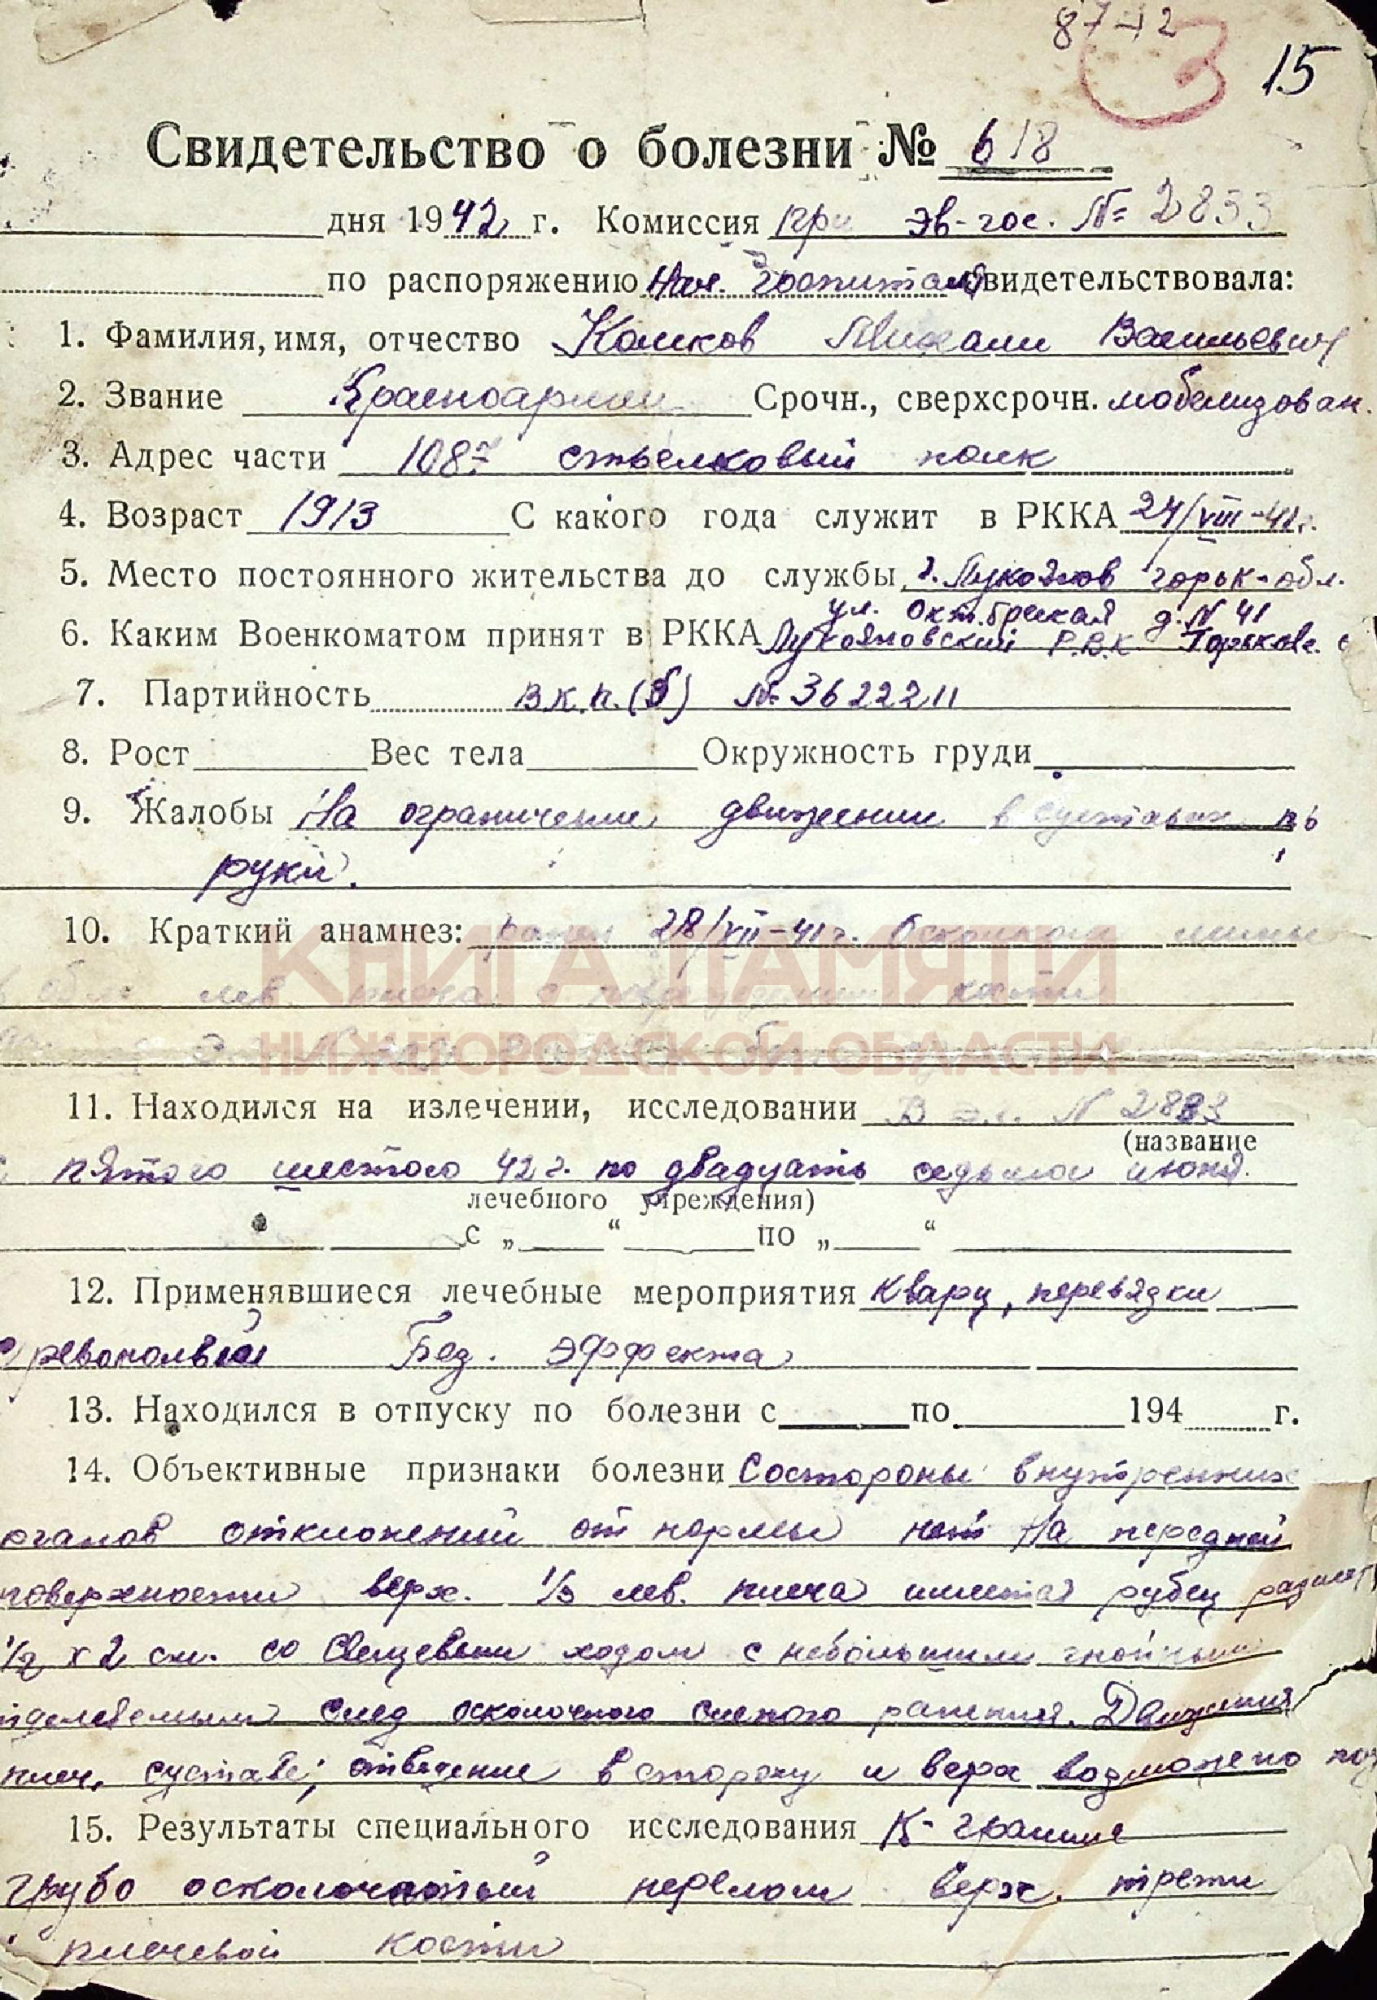 8742
3
15
Свидетельство о болезни № 618
дня 1942 г. Комиссия при эв-гос. № 2833
по распоряжению Нач. госпиталя свидетельствовала:
1. Фамилия, имя, отчество Михаил Васильевич
2. Звание Красноармеец Срочн., сверхсрочн. мобелизован.
3. Адрес части 1087 стрелковый полк
4. Возраст 1913 С какого года служит в РККА 24/VIII-41г.
5. Место постоянного жительства до службы г. Лукоянов горьк-обл.
ул. Окт.брьская д. N 41
6. Каким Военкоматом принят в РККА Лукояновский Р.В.К Горьковс. о
7. Партийность В.К.П.(б) № 3622211
8. Рост Вес тела Окружность груди
9. Жалобы На ограничение движении в суставах
руки.
10. Краткий анамнез: ранен 28/XII-41г. Осколком мины
КНИГА ПАМЯТИ
лев. плеча с кости
НИЖЕГОРОДСКОЙ ОБЛАСТИ
11. Находился на излечении, исследовании В N 2883
(название
с пятого шестого 42 г. по двадцать седьмое июня.
лечебного учреждения)
с „ “ по „ “
12. Применявшиеся лечебные мероприятия Кварц, перевязки
Без. эффекта
13. Находился в отпуску по болезни с по 194 г.
14. Объективные признаки болезни Состороны внутренних
органов отклонений от нормы нет На передней
поверхности верх. 1/3 лев. плеча имеется рубец размер
1/2 х 2 см. со Свищевым ходом с небольшим гнойным
отделяемым след осколочного слепого ранения. Движения
плеч. суставе; отведение в сторону и верх возможено
15. Результаты специального исследования R-грамма
грубо осколочатый перелом верх. трети
плечевой кости